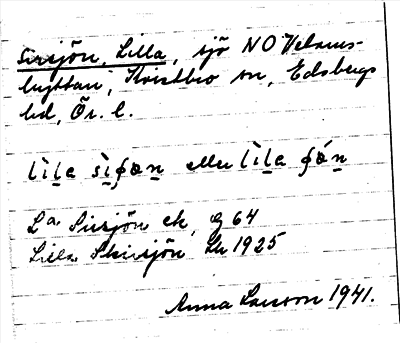 Sirsjön, Lilla, sjö NO Velams-
hyttan, Kvistbro sn, Edsbergs
hd, Ör. l.
lìl̠a sìʃøn̠ eller lìl̠a ʃǿn̠
La Sirsjön ek, G 64
Lilla Skirsjön Lk 1925
Anna Larsson 1941.